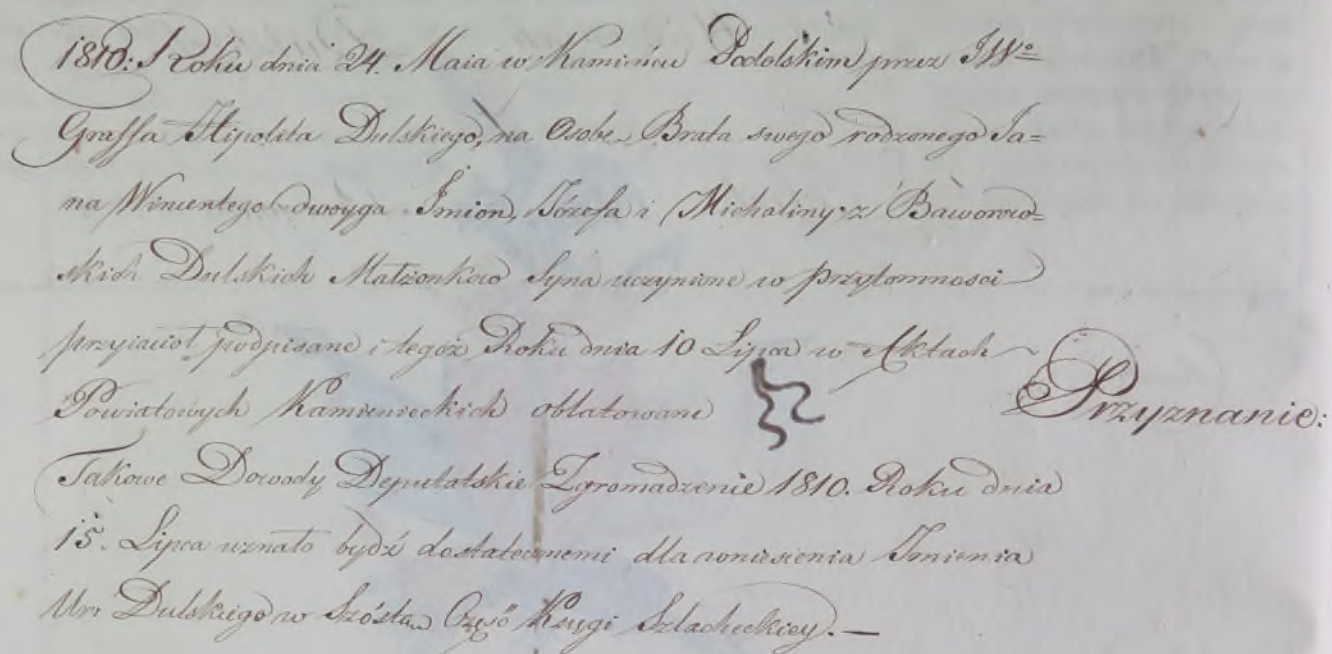 1810: Roku dnia 24. Maia w Kamińcu Podolskim przez JWº
Graffa Hipolita Dulskiego, na Osobę Brata swego rodzonego Ja=
na Wincentego dwoyga Imion, Józefa i Michaliny z Baworow=
skich Dulskich Małżonkow Syna uczynione w przytomnosci
przyiaciół podpisane i tegoż Roku dnia 10 Lipca w Aktach
Powiatowych Kamienieckich oblatowane
Przyznanie:
Takowe Dowody Deputatskie Zgromadzenie 1810. Roku dnia
15. Lipca uznało bydź dostatecznemi dla wniesienia Imienia
Uro Dulskiego w Szóstą Część Księgi Szlacheckiey. —